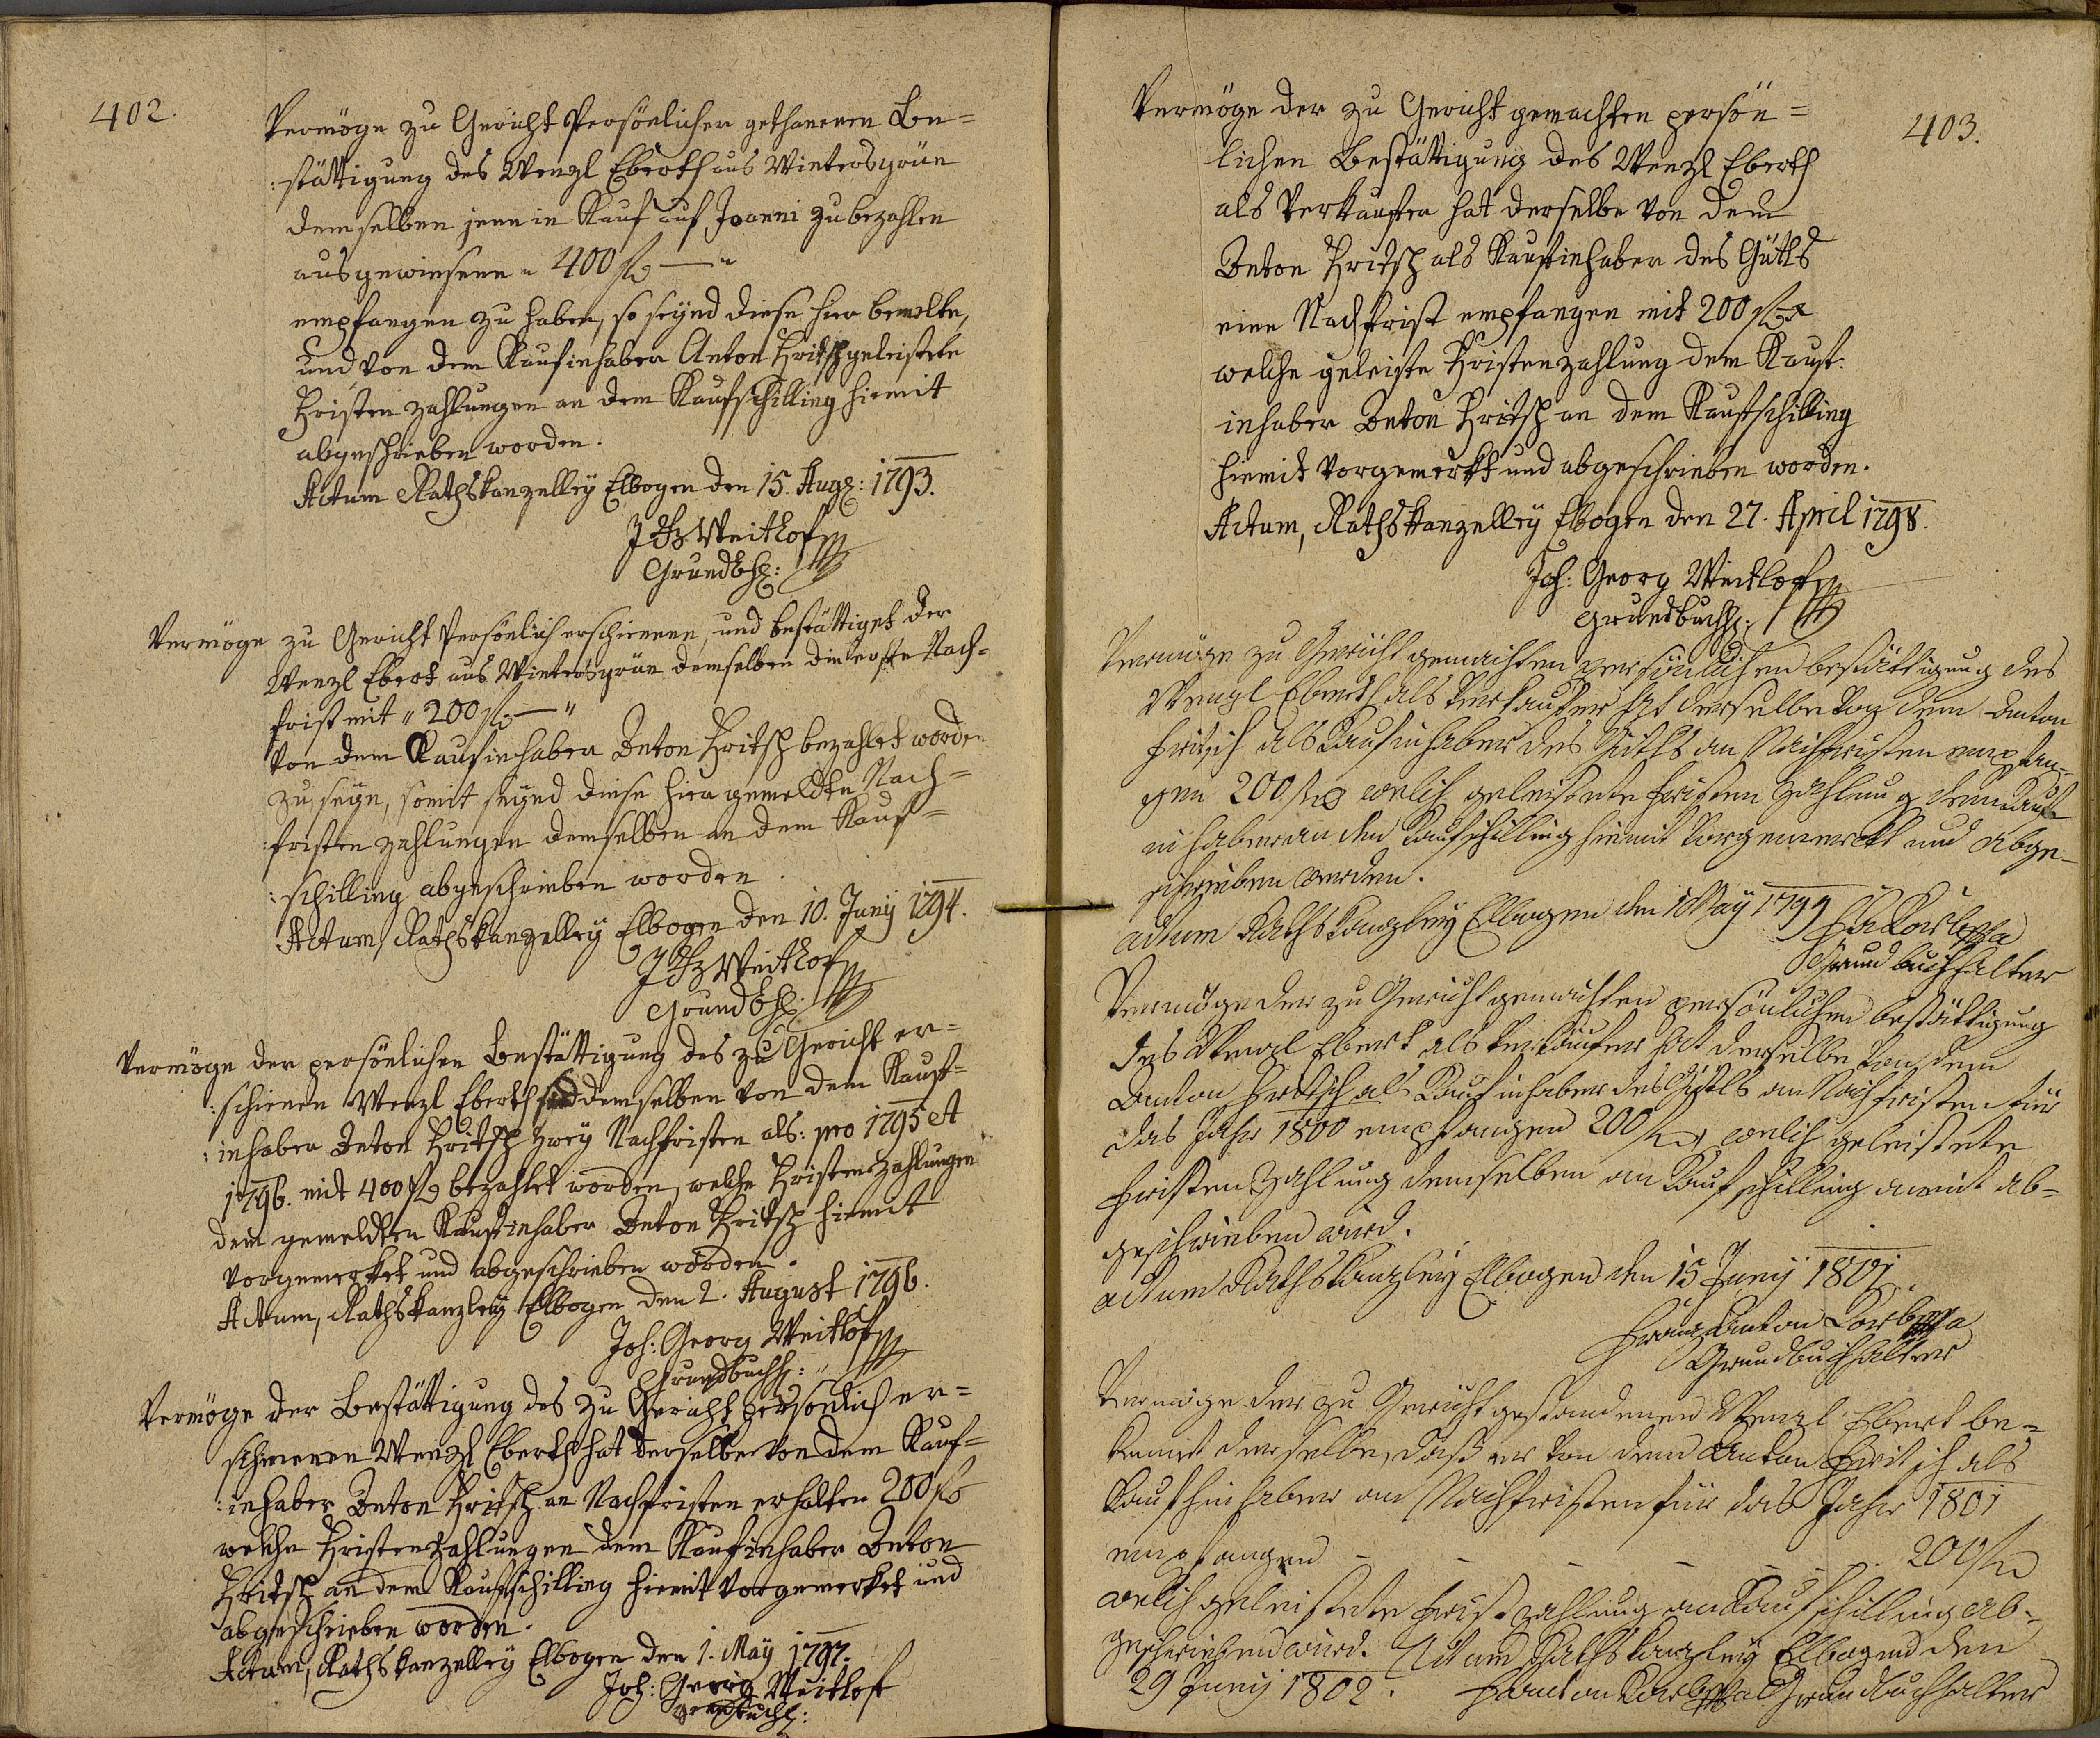 402.
Vermöge zu Gericht Persönlicher gethanenen Be=
:stättigung des Wenzl Eberth aus Wintersgrün
demselben jene in Kauf auf Joanni zu bezahlen
ausgewiesene " 400 f — "
empfangen zu haben, so seynd diese hier bemelte,
und von dem Kaufinhaber Anton Fritsch geleistete
Fristen zahlungen an dem Kaufschilling hiemit
abgeschrieben worden.
Actum Rathskanzelley Elbogen den 15. Aug: 1793.
J G Weithof
Grundbh:
Vermöge zu Gericht Persönlich erschienene, und bestättiget der
Wenzl Ebert aus Wintersgrün demselben die erste Nach=
frist mit " 200 f — "
von dem Kaufinhaber Anton Fritsch bezahlet worden
zu seyn, somit seynd diese hier gemeldte Nach=
:fristen zahlungen demselben an dem Kauf=
:schilling abgeschrieben worden.
Actum, Rathskanzelley Elbogen den 10. Juny 1794.
J G Weithof
Grundbh:
Vermöge der persönlichen Bestättigung des zu Gericht er=
:schienen Wenzl Eberth sind demselben von dem Kauf=
:inhaber Anton Fritsch zwey Nachfristen als: pro 1795 et
1796. mit 400 f bezahlet worden, welche Fristenzahlungen
dem gemeldten Kaufinhaber Anton Fritsch hiemit
vorgemerket und abgeschrieben worden.
Actum, Rathskanzley Elbogen den 2. August 1796.
Joh: Georg Weithof
Grundbuchh:
Vermöge der Bestättigung des zu Gericht persönlich er=
schienenen Wenzl Eberth hat derselbe von dem Kauf=
:inhaber Anton Fritsch an Nachfristen erhalten 200 f
welche Fristenzahlungen dem Kaufinhaber Anton
Fritsch an dem Kaufschilling hiemit vorgemerket und
abgeschrieben worden.
Actum, Rathskanzelley Elbogen den 1. May 1797.
Joh: Georg Weithof
Grundbuchh:
403.
Vermöge der zu Gericht gemachten persön=
lichen Bestättigung des Wenzl Eberth
als Verkäufer hat derselbe von dem
Anton Fritsch als Kaufinhaber des Gütls
eine Nachfrist empfangen mit 200 f
welche geleiste Fristenzahlung dem Kauf:
inhaber Anton Fritsch an dem Kaufschilling
hiemit vorgemerkt und abgeschrieben worden.
Actum, Rathskanzelley Elbogen den 27. April 1798.
Joh: Georg Weithof
Grundbuchh:
Vermöge zu Gericht gemachten persönlichen bestättigung des
Wenzl Eberth als Verkaufer hat derselbe von dem Anton
Fritsch als Kaufinhaber des Gütls an Nachfristen empfan-
gen 200 f welch geleistete Fristen Zahlung dem Kauf-
inhaber an dem Kaufschilling hiemit vorgemerckt und abge-
schrieben worden.
actum Rathskanzley Elbogen den 1 May 1799
Grund buchhalter
Vermöge der zu Gericht gemachten persönlichen bestättigung
des Wenzl Ebert als Verkäufer hat derselbe von dem
Anton Fritsch als Kaufinhaber des Gütls an Nachfristen für
das Jahr 1800 empfangen 200 f welch geleistete
Fristen Zahlung demselben an Kaufschilling anmit ab=
geschrieben wird.
actum Rathskanzley Elbogen den 15 Juny 1801
Franz Anton
Grundbuchhalter
Vermöge der zu Gericht gestandenen Wenzl Ebert be=
kennet derselbe, daß er von dem Anton Fritsch als
Kaufinhaber an Nachfristen für das Jahr 1801
empfangen - - - - 200 f
welch geleistete Fristzahlung an Kaufschilling ab-
geschrieben wird. Actum Rathskanzley Elbogen den
29 Juny 1802. Grundbuchhalter